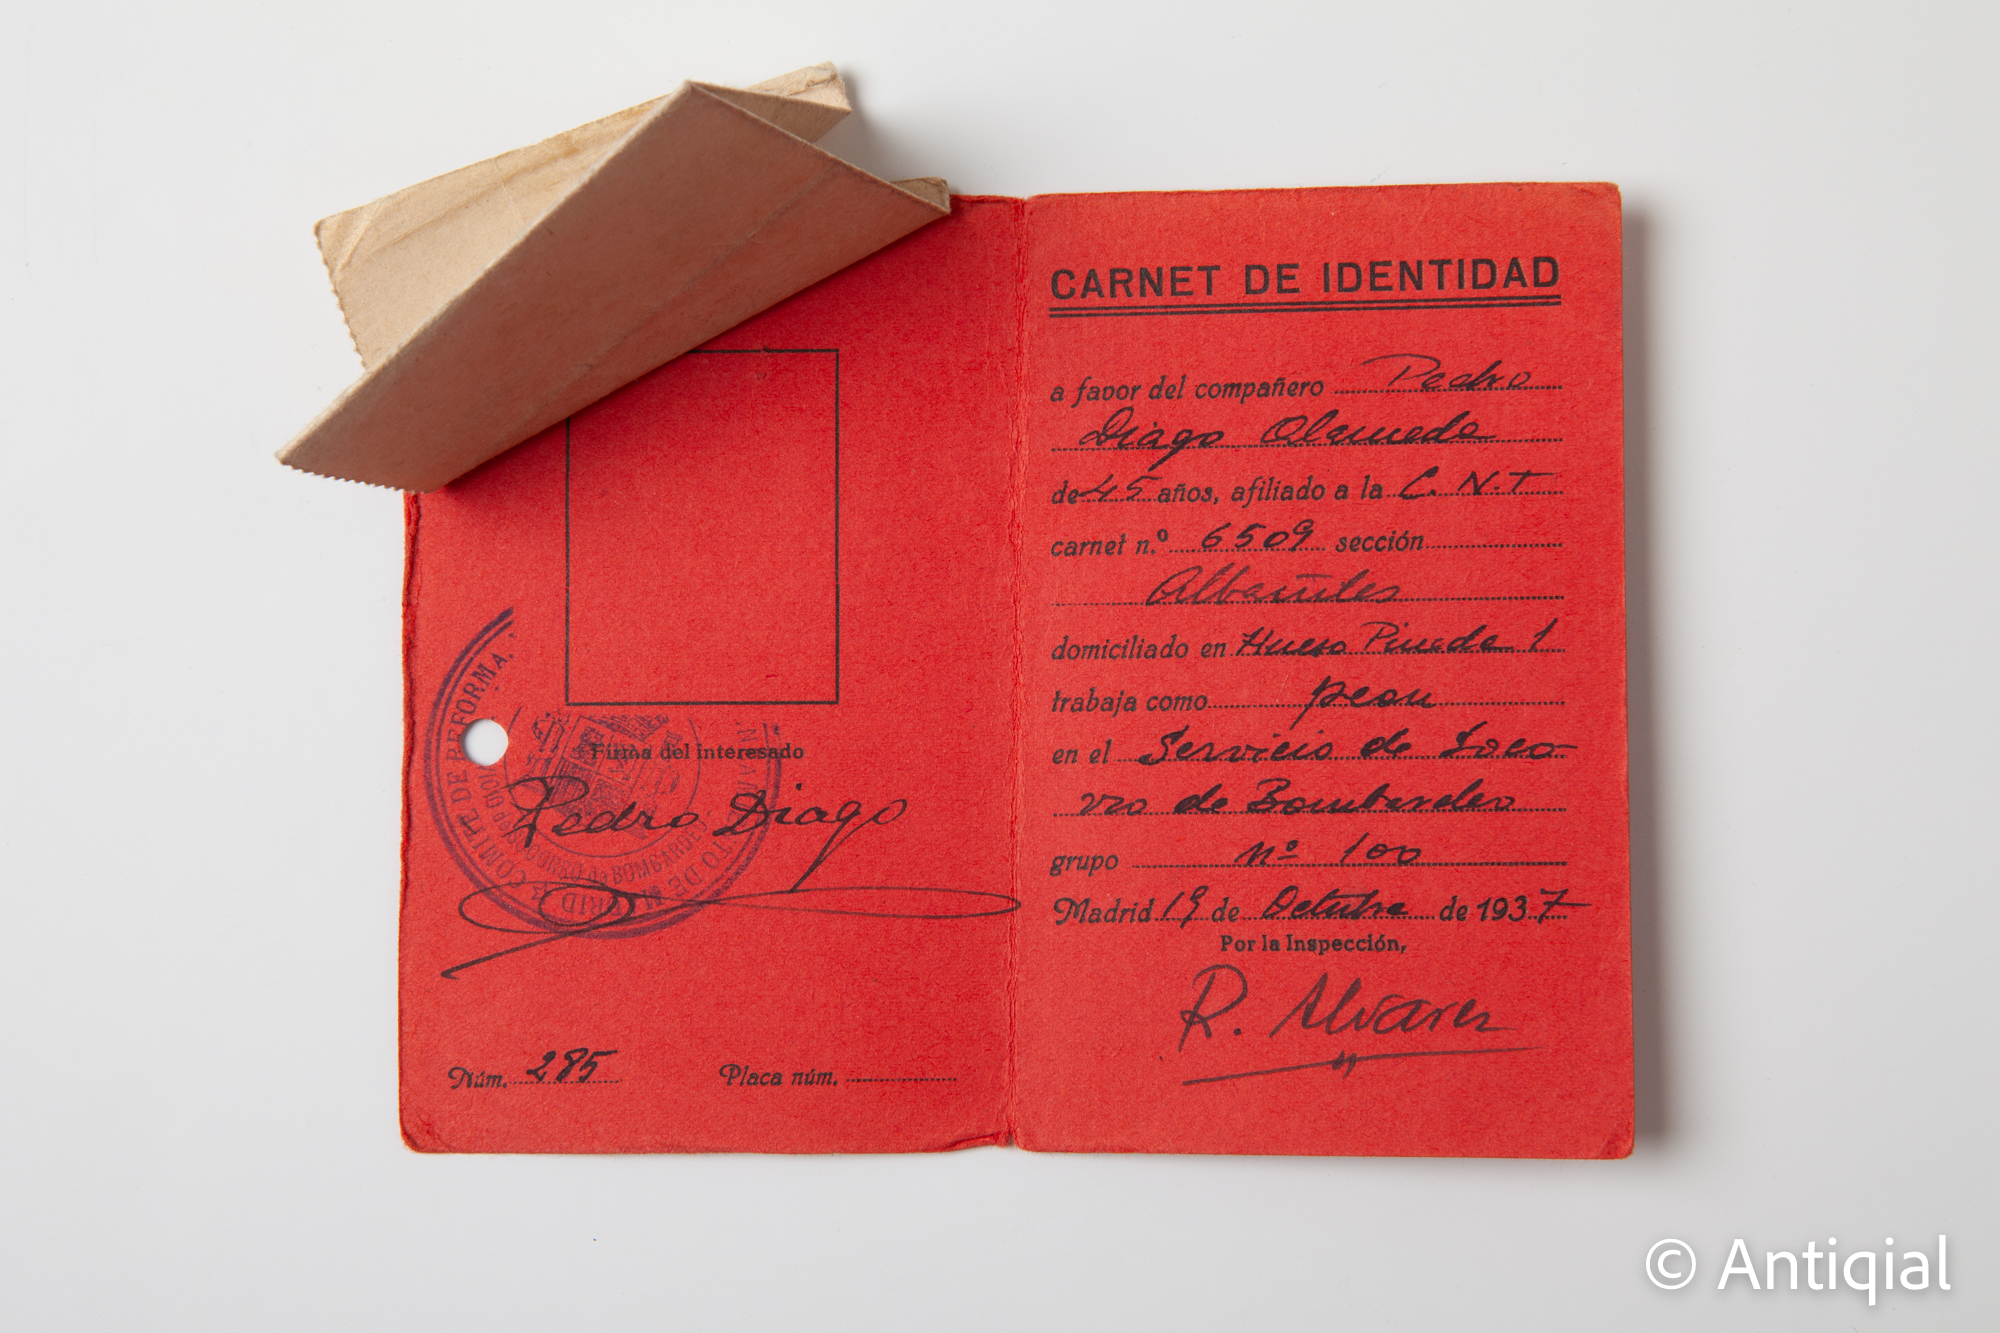 Firma del interesado
Pedro Diago
COMITÉ DE REFORMA.
Núm. 285
Placa núm.
CARNET DE IDENTIDAD
a favor del compañero Pedro
Diago Alameda
de 45 años, afiliado a la C.N.T
carnet n.º 6509 sección
Albañiles
domiciliado en Hueso Pineda 1
trabaja como peon
en el Servicio de Soco-
rro de Bombardeo
grupo nº 100
Madrid 19 de Octubre de 1937
Por la Inspección,
R. Alvarez
© Antiqial